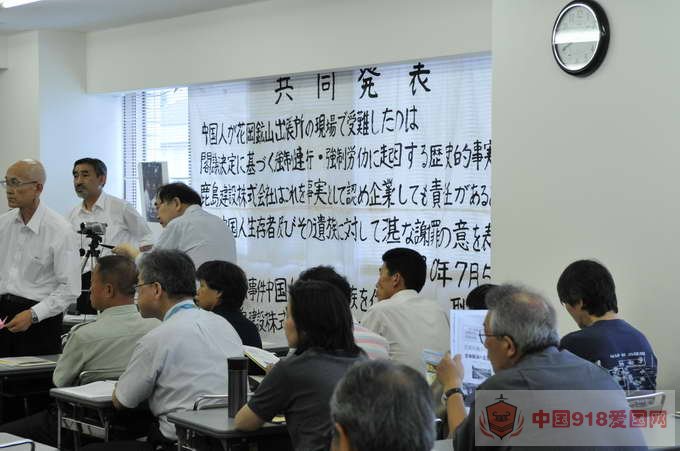 共同発表
中国人が花岡鉱山出張所の現場で受難したのは
閣議決定に基づく強制連行・強制労働に起因する歴史的事実
鹿島建設株式会社はこれを事実として認め企業としても責任がある
中国人生存者及びその遺族に対して深甚な謝罪の意を表
0年7月5
事件中国
鹿島建設株
中国918爱国网